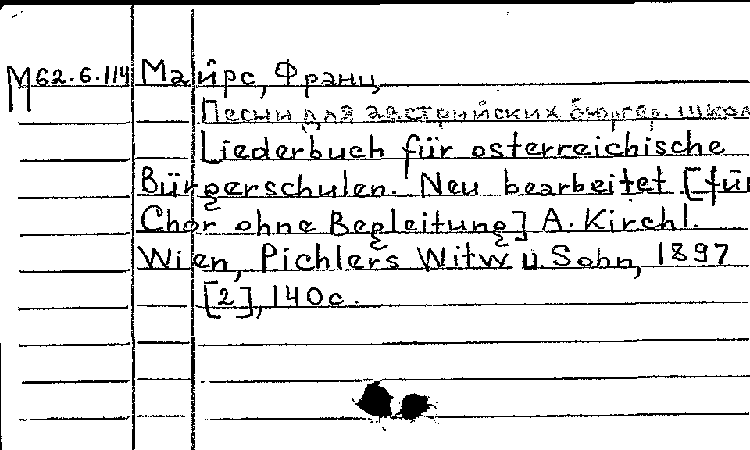 М62.6.114 Майрс, Франц
Песни для австрийских бюргер. школ
Liederbuch für österreichische
Bürgerschulen. Neu bearbeitet [für
Chor ohne Begleitung] A. Kirchl.
Wien, Pichlers Witw u. Sohn, 1897
[2], 140 с.